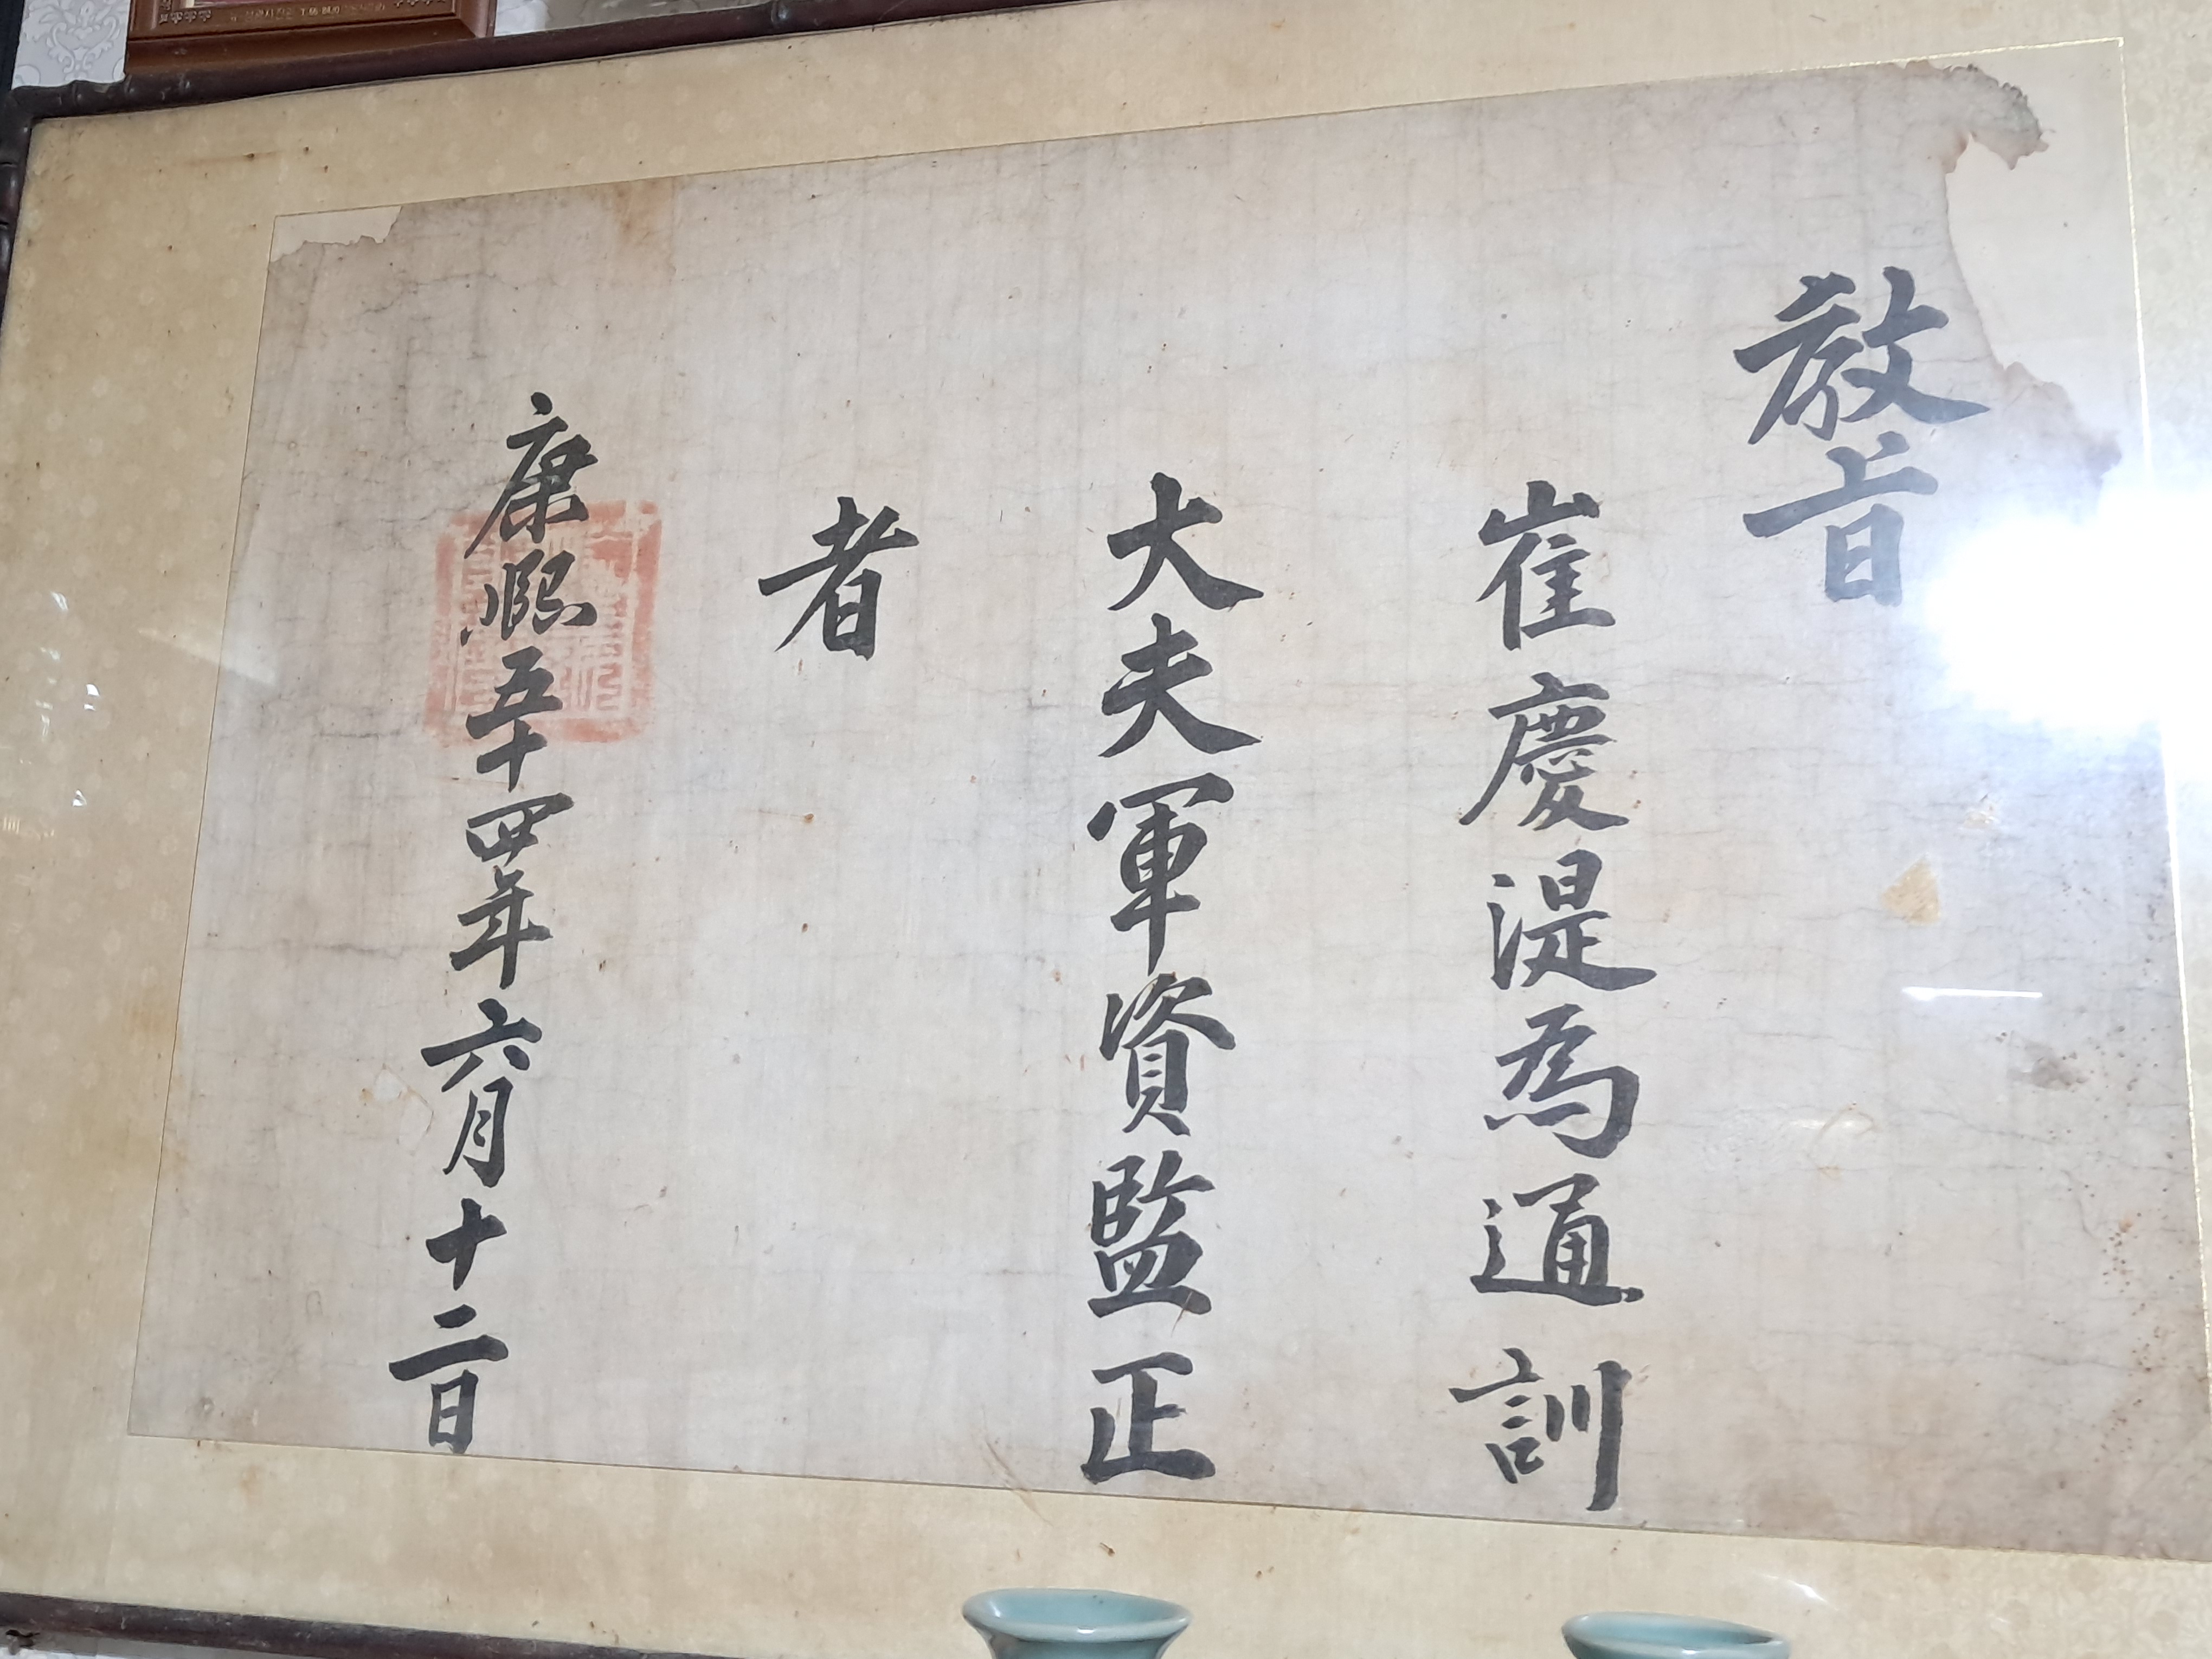 敎旨
崔慶湜為通訓
大夫軍資監正
者
康熙五十四年六月十二日